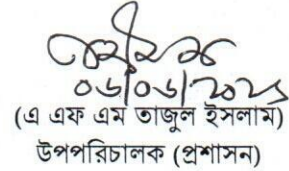 ০৬/০৬/২০২১
(এ এফ এম তাজুল ইসলাম)
উপপরিচালক (প্রশাসন)